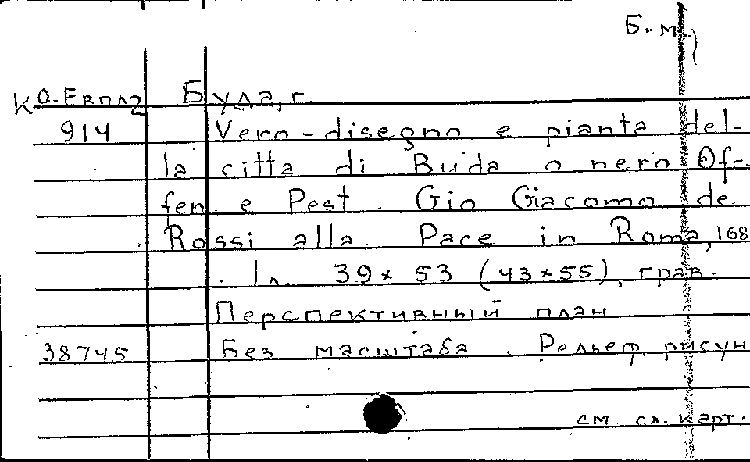 Б.м.
К О-Евпл2 Буда, г.
914 Vero-disegno e pianta del-
la citta di Buda o nero Of-
fen e Pest. Gio Giacomo de
Rossi alla Pace in Roma, 168
1 л. 39×53 (43×55), грав.
Перспективный план
38745 Без масштаба. Рельеф рисун
см. сл. карт.